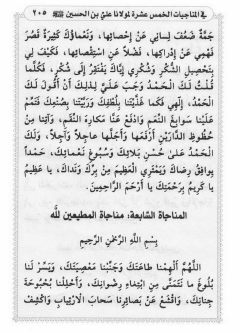 في المناجيات الخمس عشرة لمولانا علي بن الحسين ٢٠٥
جَمَّةٌ ضَعُفَ لِسَانِي عَنْ إِحْصَائِهَا، وَنَعْمَاؤُكَ كَثِيرَةٌ قَصُرَ
فَهْمِي عَنْ إِدْرَاكِهَا، فَضْلاً عَنِ اسْتِقْصَائِهَا، فَكَيْفَ لِي
بِتَحْصِيلِ الشُّكْرِ وَشُكْرِي إِيَّاكَ يَفْتَقِرُ إِلَى شُكْرٍ، فَكُلَّمَا
قُلْتُ لَكَ الْحَمْدُ وَجَبَ عَلَيَّ لِذَلِكَ أَنْ أَقُولَ لَكَ
الْحَمْدُ، إِلَهِي فَكَمَا غَذَّيْتَنَا بِلُطْفِكَ وَرَبَّيْتَنَا بِصُنْعِكَ فَتَمِّمْ
عَلَيْنَا سَوَابِغَ النِّعَمِ وَادْفَعْ عَنَّا مَكَارِهَ النِّقَمِ، وَآتِنَا مِنْ
حُظُوظِ الدَّارَيْنِ أَرْفَعَهَا وَأَجَلَّهَا عَاجِلاً وَآجِلاً، وَلَكَ
الْحَمْدُ عَلَى حُسْنِ بَلَائِكَ وَسُبُوغِ نَعْمَائِكَ، حَمْداً
يُوَافِقُ رِضَاكَ وَيَمْتَرِي الْعَظِيمَ مِنْ بِرِّكَ وَنَدَاكَ، يَا عَظِيمُ
يَا كَرِيمُ بِرَحْمَتِكَ يَا أَرْحَمَ الرَّاحِمِينَ.
المناجاة السّابعة: مناجاة المطيعين لله
بِسْمِ اللَّهِ الرَّحْمَنِ الرَّحِيمِ
اللَّهُمَّ أَلْهِمْنَا طَاعَتَكَ وَجَنِّبْنَا مَعْصِيَتَكَ، وَيَسِّرْ لَنَا
بُلُوغَ مَا نَتَمَنَّى مِنِ ابْتِغَاءِ رِضْوَانِكَ، وَأَحْلِلْنَا بُحْبُوحَةَ
جِنَانِكَ، وَاقْشَعْ عَنْ بَصَائِرِنَا سَحَابَ الِارْتِيَابِ وَاكْشِفْ